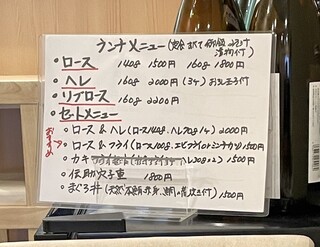 ランチメニュー(定食 すべて 御飯 みそ汁
漬物付)
・ロース 140g 1500円 160g 1800円
・ヘレ 160g 2000円(3ケ)
・リブロース 160g 2200円
・セットメニュー
おすすめ
・ロース&ヘレ(ロース140g、ヘレ70g 1ケ) 2000円
・ロース&フライ(ロース140g、エビフライorミンチカツ)1500円
・カキ 1500円
・伝助穴子重 1800円
・まぐろ丼(天然本鮪赤身、鯛の荒炊き付)1500円